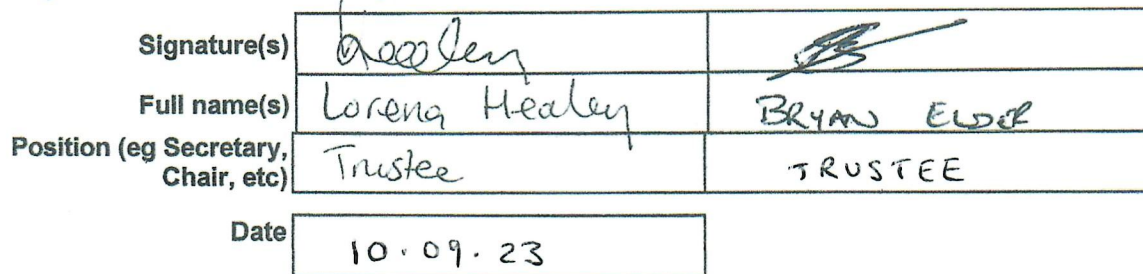 Signature(s)
Full name(s) Lorena Healey BRYAN ELDER
Position (eg Secretary, Trustee TRUSTEE
Chair, etc)
Date 10.09.23